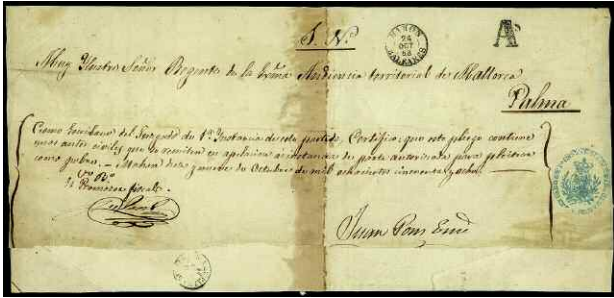 S. N.
MAHON
24
OCT
58
BALEARES
A
Muy Ilustre Señor Regente de la Audiencia territorial de Mallorca
Palma
Como Escribano del Juzgado de 1ª Instancia de este partido, Certifico: que este pliego contiene
unos autos civiles que se remiten en apelacion a instancia de parte autorizada para
como pobre. Mahon diez y nueve de Octubre de mil ochocientos cincuenta y ocho.
Vº Bº
El Promotor fiscal.
Juan Pons